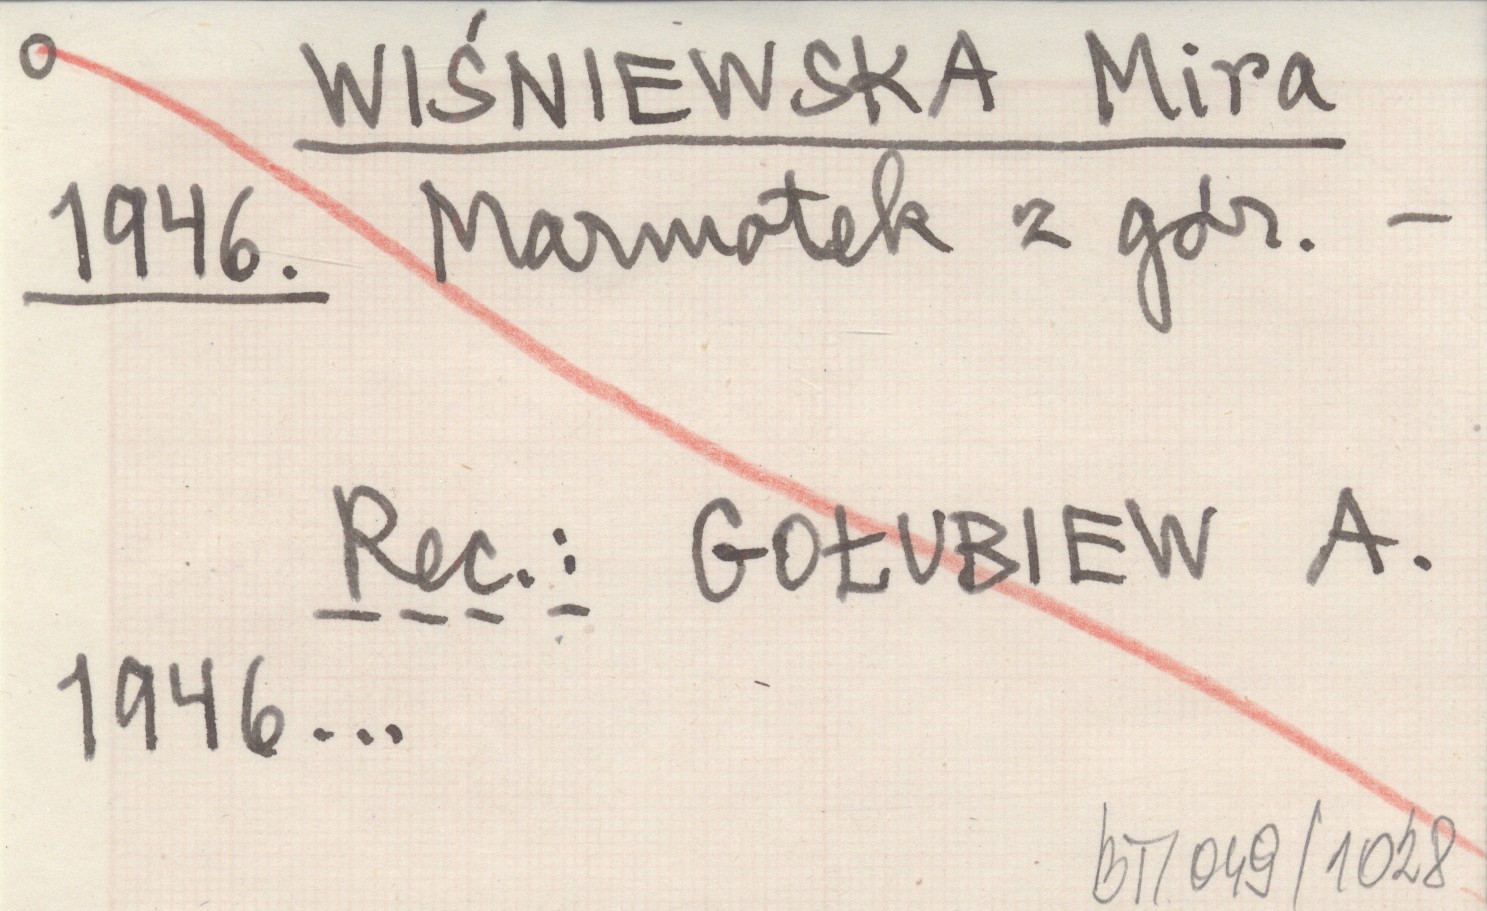 WIŚNIEWSKA Mira
1946. Marmotek z gór. -
Rec.: GOŁUBIEW A.
1946...
BT/049/1028